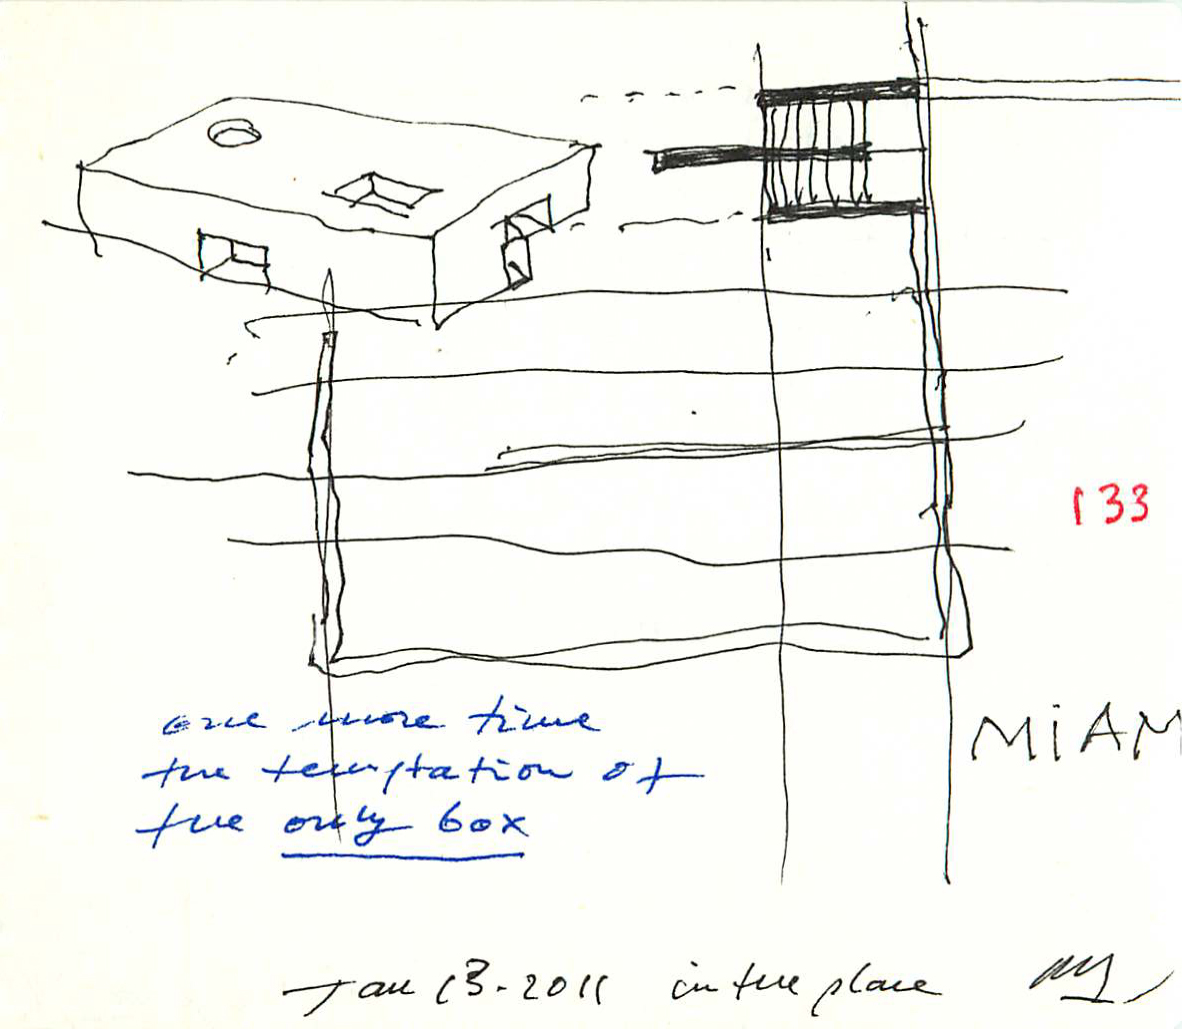 133
MiAM
one more time
the temptation of
the only box
Jan 13-2011 in the plane